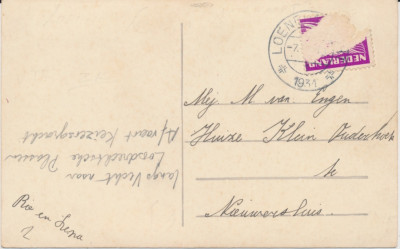 LOENE
7.
1931
NEDERLAND
Mej M van Engen
Huize Klein Ouderhoek
te
Nieuwersluis.
langs Vecht naar
Loosdrechtsche Plassen
Afvaart Keizersgracht
Ro en Lena